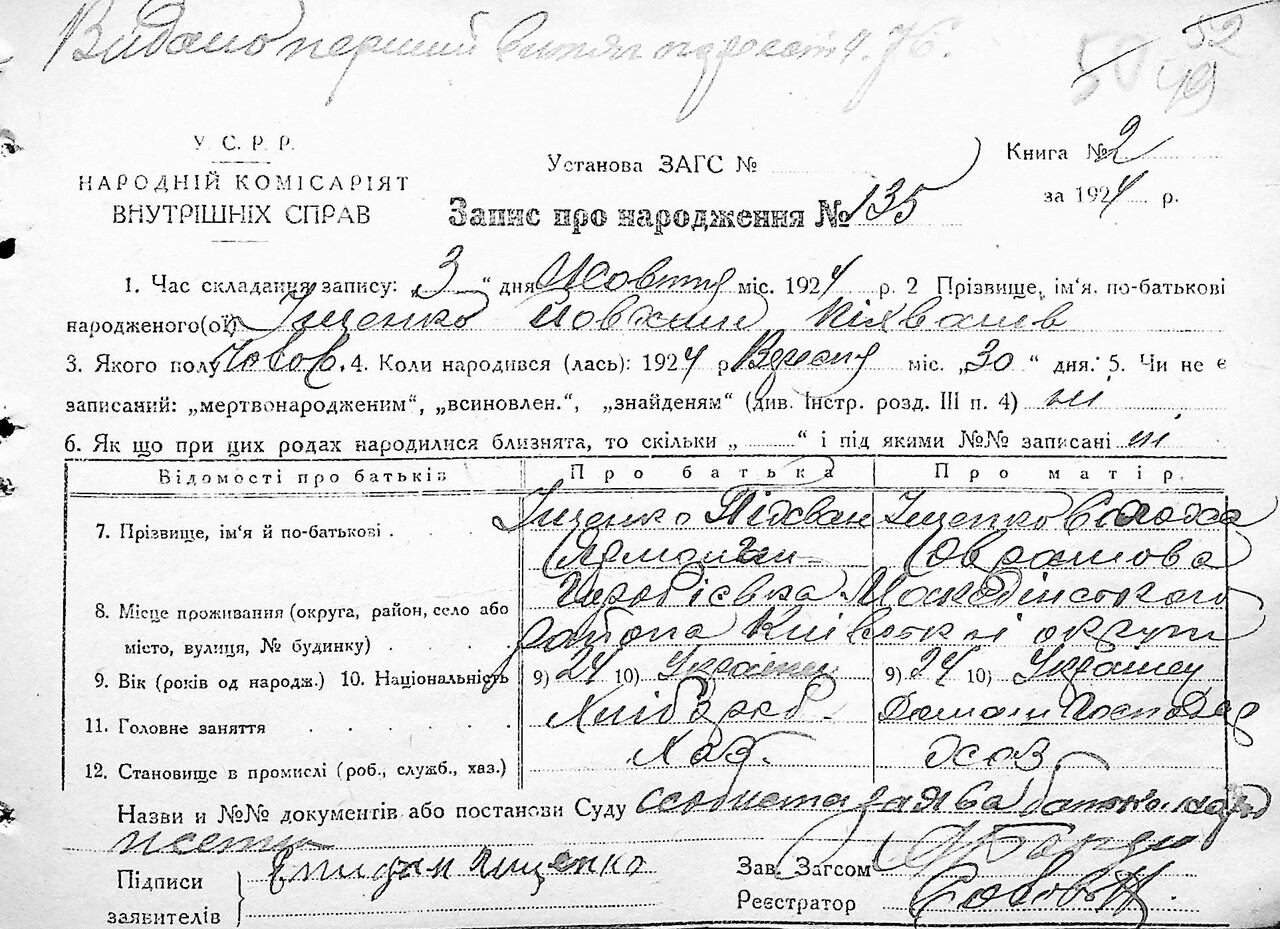 Видано перший витяг
52
50 49
У. С. Р. Р.
НАРОДНІЙ КОМІСАРІЯТ
ВНУТРІШНІХ СПРАВ
Установа ЗАГС №
Книга № 2
за 1924 р.
Запис про народження № 135
1. Час складання запису: „3“ дня Жовтня міс. 1924 р. 2 Прізвище, ім'я, по-батькові
народженого(ої) Іщенко Йовхим
3. Якого полу Чолов. 4. Коли народився (лась): 1924 р. Вересня міс. „30“ дня. 5. Чи не є
записаний: „мертвонародженим“, „всиновлен.“, „знайденям“ (див. Інстр. розд. III п. 4) ні
6. Як що при цих родах народилися близнята, то скільки „ “ і під якими №№ записані ні
Відомості про батьків Про батька Про матір.
7. Прізвище, ім'я й по-батькові . Іщенко Іщенко Солоха
Оврамова
8. Місце проживання (округа, район, село або
місто, вулиця, № будинку) . района Київської округи
9. Вік (років од народж.) 10. Національність 9) 24 10) Українець 9) 24 10) Українка
11. Головне заняття . . . . Хлібороб. Домашн Господар
12. Становище в промислі (роб., служб., хаз.) Хаз. Хаз.
Назви и №№ документів або постанови Суду особиста заява батька
Підписи
заявителів Іщенко
Зав. Загсом
Реєстратор